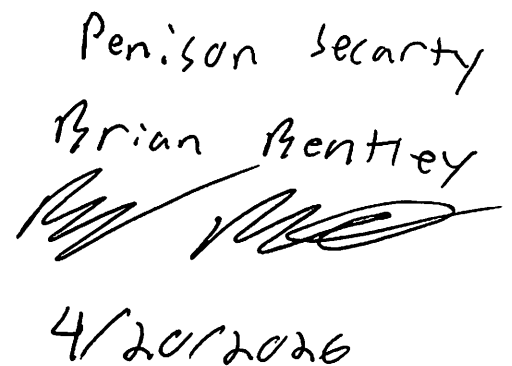 Penison Securty
Brian Bentley
4/20/2026